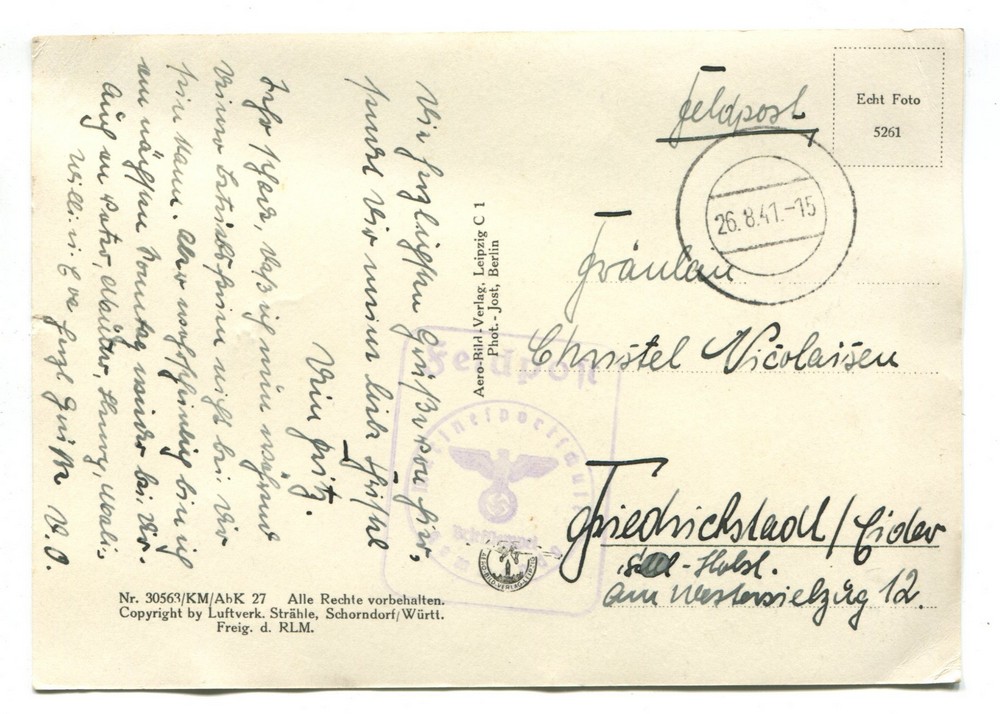 Die herzlichsten Grüße von hier,
sendet Dir meine liebe Christel
Dein Fritz.
Sehr schade, daß ich nun während
Deines Betriebsferien nicht bei Dir
sein kann. Aber wahrscheinlich bin ich
am nächsten Sonntag wieder bei Dir.
Auch an Vater, Mutter,
Willi u. Eva herzl Grüße
D. O.
Aero-Bild-Verlag, Leipzig C 1
Phot.-Jost, Berlin
Nr. 30563/KM/AbK 27 Alle Rechte vorbehalten.
Copyright by Luftverk. Strähle, Schorndorf/Württ.
Freig. d. RLM.
Echt Foto
5261
Feldpost
26.8.41.-15
Fräulein
Christel Nicolaisen
Feldpost
Friedrichstadt/Eider
-Holst.
am Westersielzug 12.